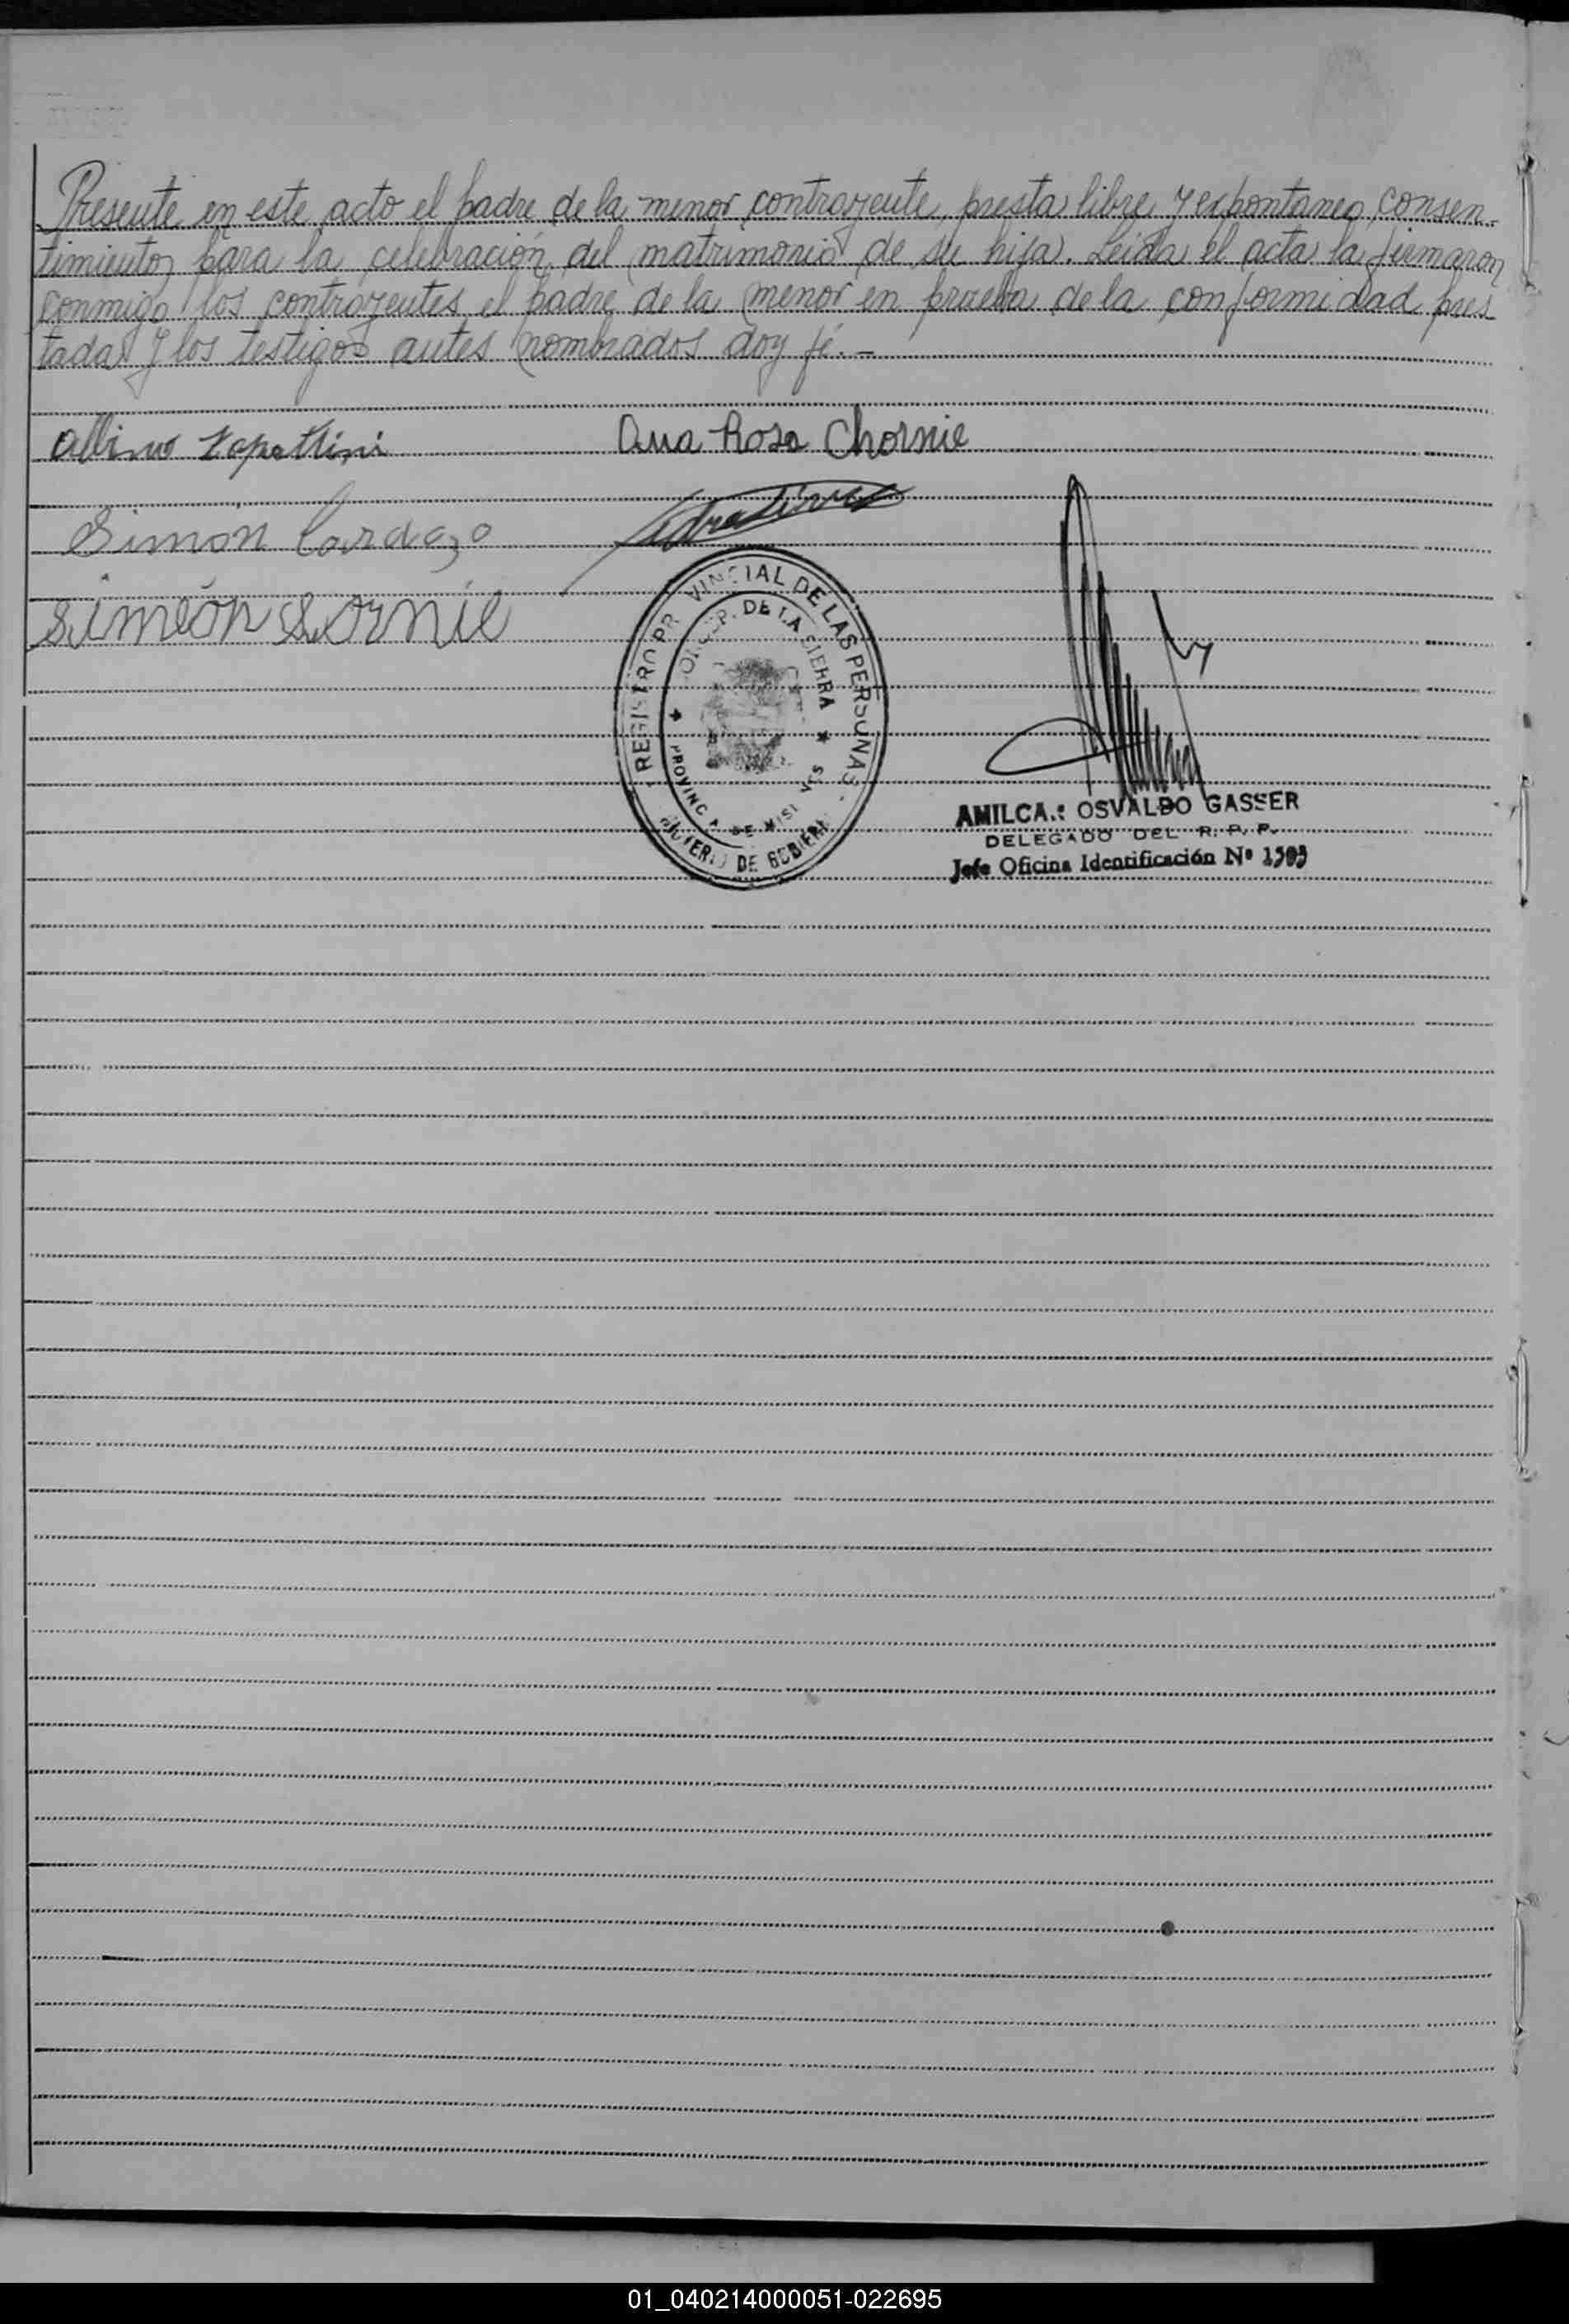 Presente en este acto el padre de la menor contrayente, presta libre y expontaneo consen-
timiento para la celebración del matrimonio de su hija. Leída el acta la firmaron
conmigo los contrayentes, el padre de la menor en prueba de la conformidad pres
tada y los testigos antes nombrados doy fé.-
Albino Zapattini
Ana Rosa Chornie
Simón Cardozo
Simeón
REGISTRO PR VINCIAL DE LAS PERSONAS
CONCEP. DE LA SIERRA
PROVINC A DE MISI NES
DE GOBIERN
AMILCA.: OSVALDO GASSER
DELEGADO DEL R. P. P.
Jefe Oficina Identificación Nº 1503
01_040214000051-022695